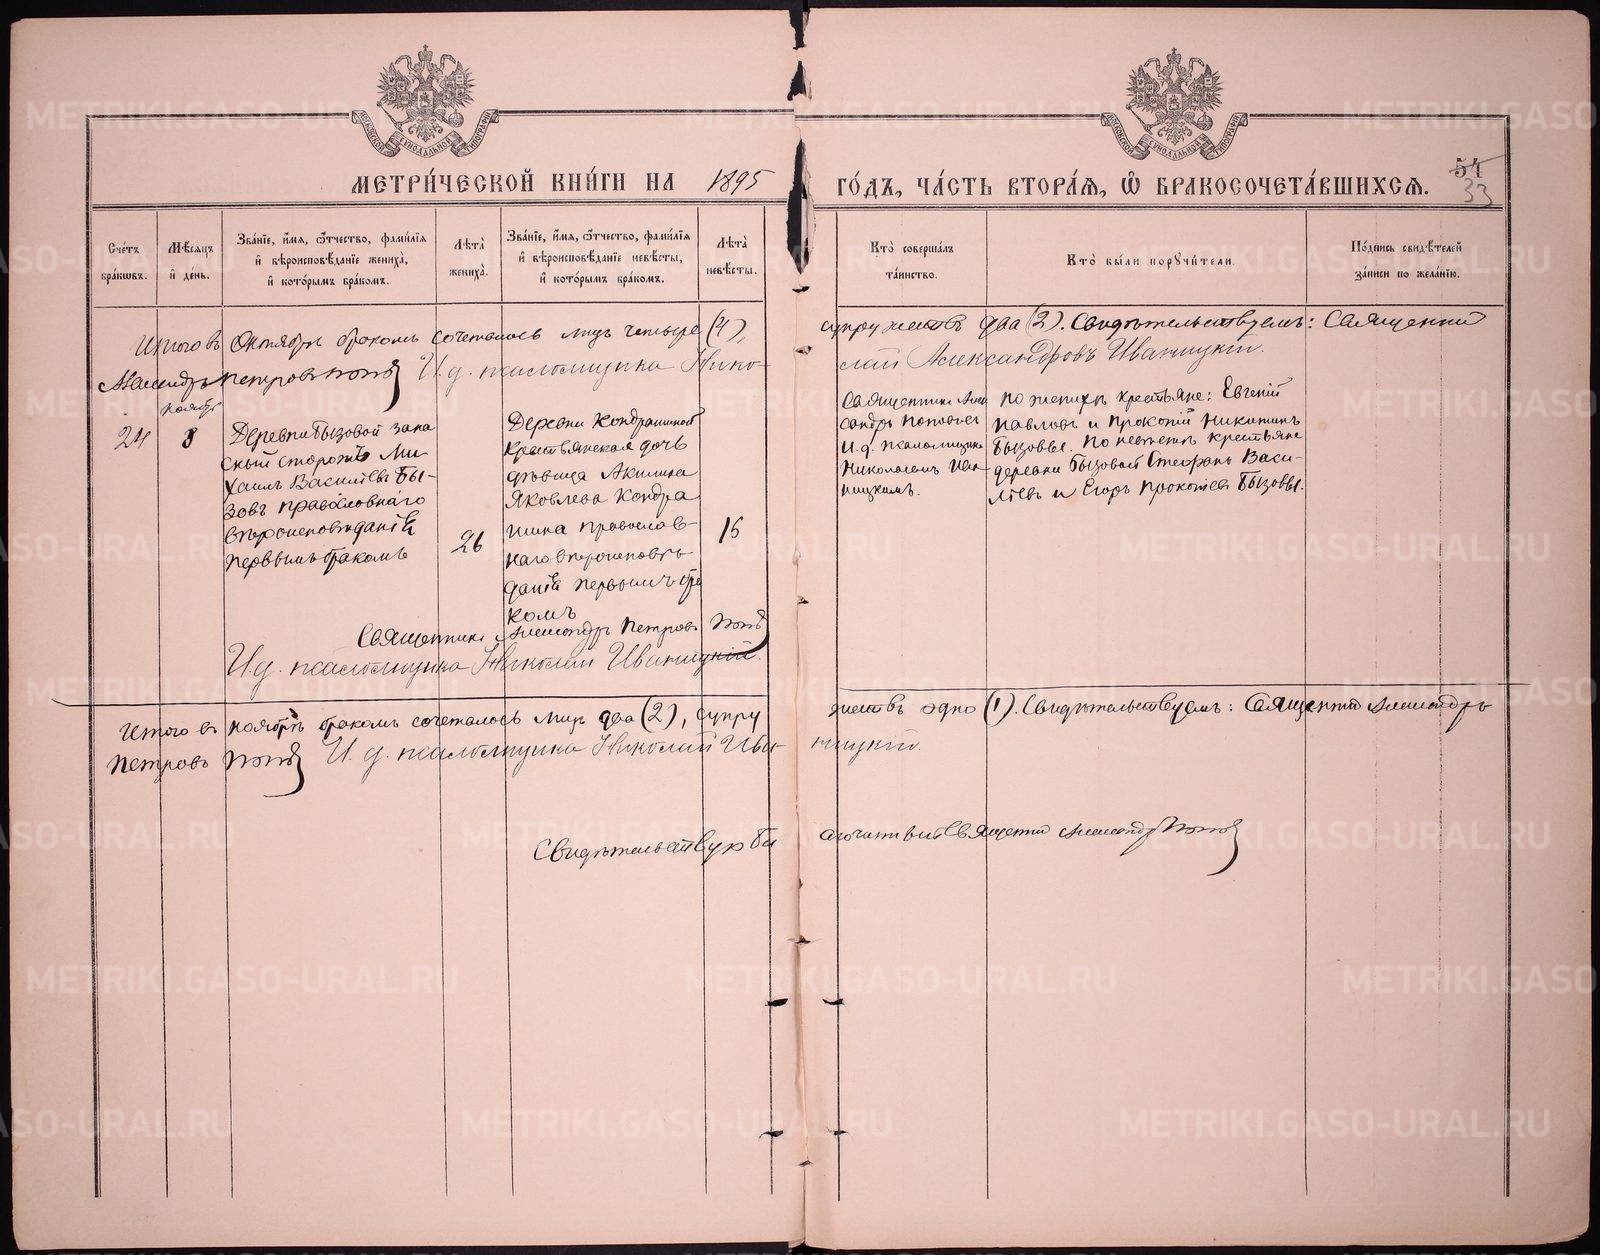 МОСКОВСКОЙ СѴНОДАЛЬНОЙ ТИПОГРАФІИ
МОСКОВСКОЙ СѴНОДАЛЬНОЙ ТИПОГРАФІИ
МЕТРИ́ЧЕСКОЙ КНИ́ГИ НА 1895 ГО́ДЪ, ЧА́СТЬ ВТОРА́Ѧ, Ѽ БРАКОСОЧЕТА́ВШИХСѦ.
54
33
Сче́тъ бра́кѡвъ.
Мѣ́сѧцъ и҆ де́нь.
Зва́нїе, и҆́мѧ, ѻ҆́тчество, фами́лїѧ и҆ вѣроисповѣ́данїе жениха̀, и҆ кото́рымъ бра́комъ.
Лѣ́та жениха̀.
Зва́нїе, и҆́мѧ, ѻ҆́тчество, фами́лїѧ и҆ вѣроисповѣ́данїе невѣ́сты, и҆ кото́рымъ бра́комъ.
Лѣ́та невѣ́сты.
Кто̀ соверша́лъ та́инство.
Кто̀ бы́ли порꙋчи́тели.
По́дпись свидѣ́телей за́писи по жела́нїю.
Итого въ Октябрѣ бракомъ сочеталось лицъ четыре (4), супружествъ два (2). Свидѣтельствуемъ: Священникъ
Александръ Петровъ Поповъ И. д. псаломщика Николай Александровъ Иваницкій.
24
Ноябрь
8
Деревни Бызовой запа
сный
Ми
хаилъ Васильевъ Бы-
зовъ православнаго
вѣроисповѣданія
первымъ бракомъ
26
Деревни Кондрашиной
крестьянская дочь
дѣвица Акилина
Яковлева Кондра
шина православ-
наго вѣроисповѣ-
данія первымъ бра
комъ
16
Священникъ Алек
сандръ Поповъ съ
И. д. псаломщика
Николаемъ Ива
ницкимъ.
По женихѣ крестьяне: Евгеній
Павловъ и Прокопій Никитинъ
Бызовы. По невѣстѣ крестьяне
деревни Бызовой Стефанъ Васи-
льевъ и Егоръ Прокопьевъ Бызовы.
Священникъ Александръ Петровъ Поповъ
И. д. псаломщика Николай Иваницкій.
Итого въ Ноябрѣ бракомъ сочеталось лицъ два (2), супружествъ одно (1). Свидѣтельствуемъ: Священникъ Александръ
Петровъ Поповъ И. д. псаломщика Николай Иваницкій.
Свидѣтельствую Благочинный Священникъ Александръ Поповъ
METRIKI.GASO-URAL.RU